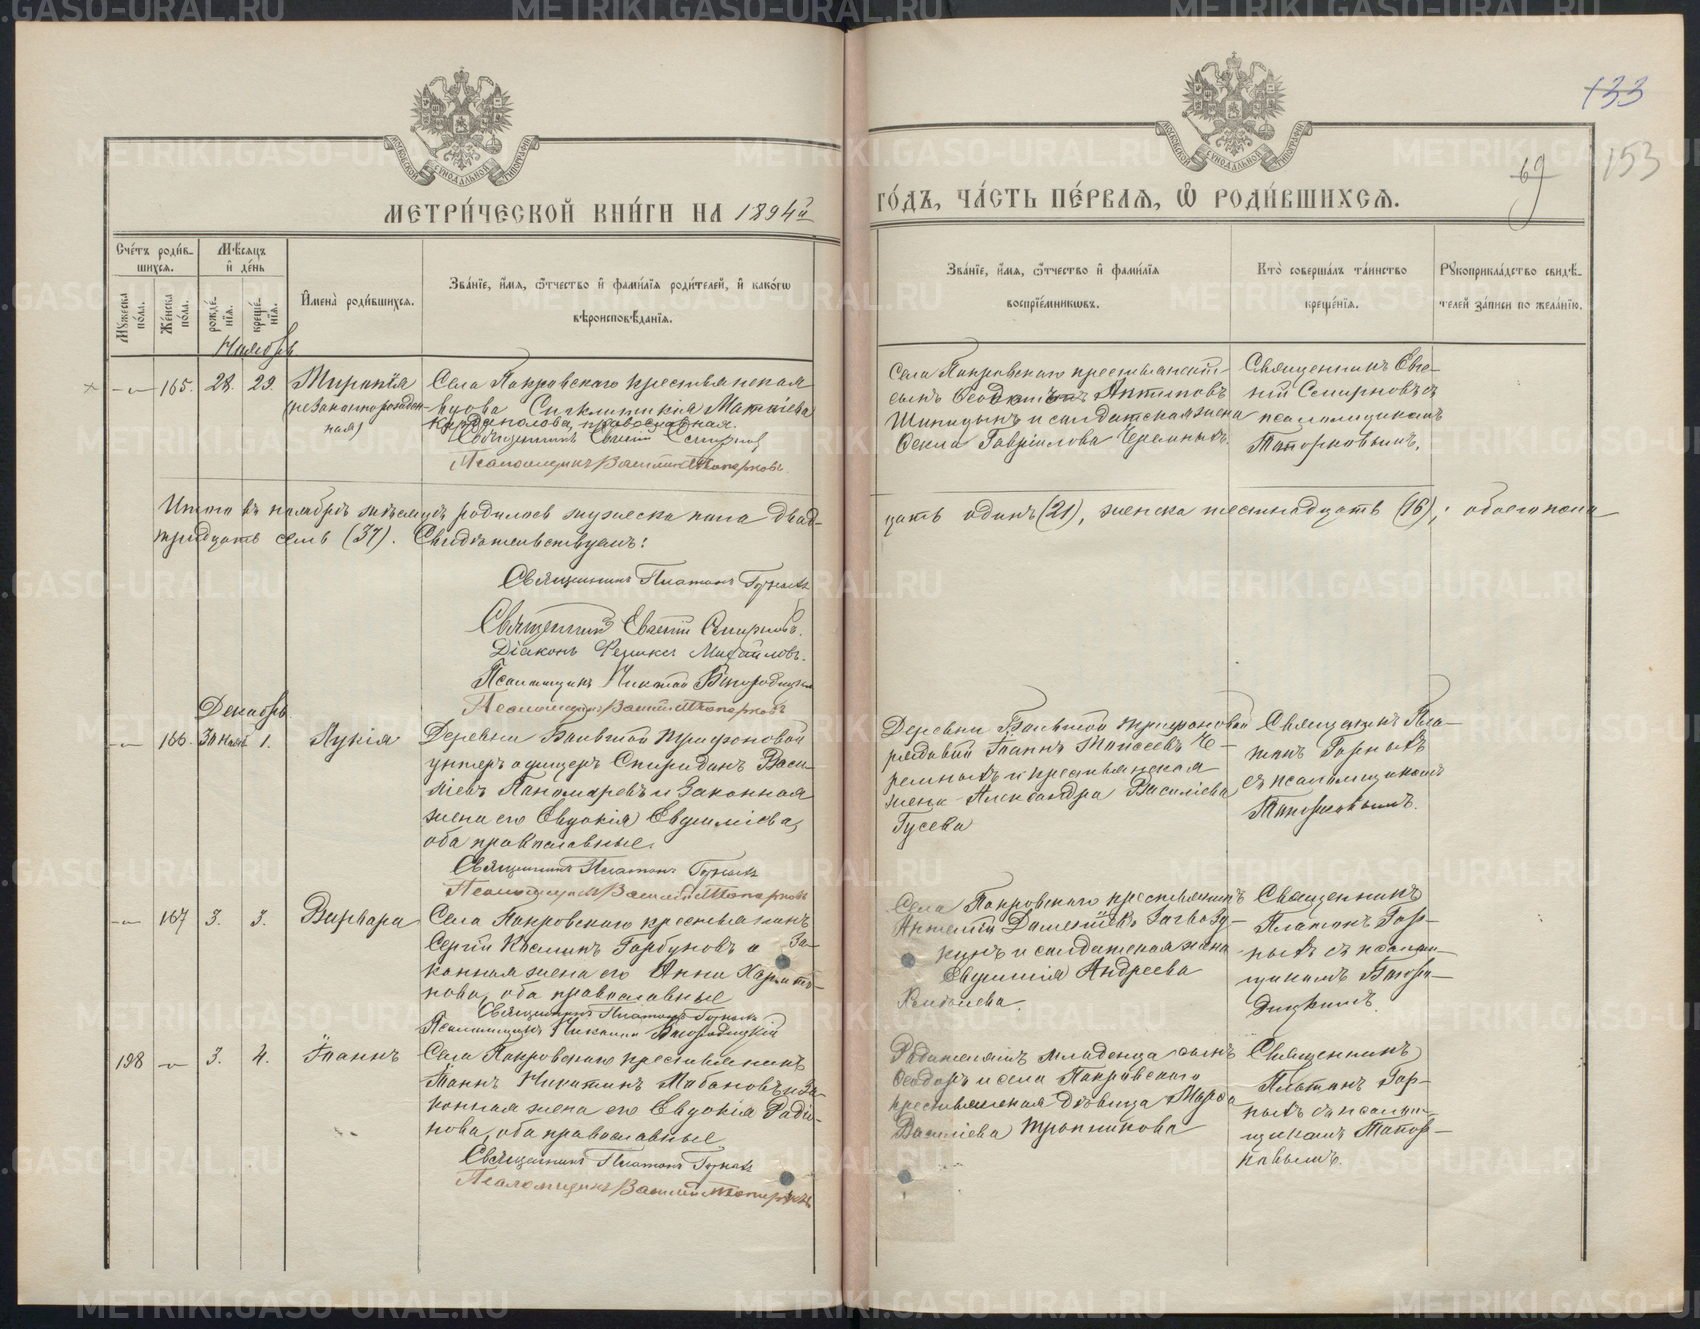 МЕТРИ́ЧЕСКОЙ КНИ́ГИ НА 1894й ГО́ДЪ, ЧА́СТЬ ПЕ́РВАЯ, Ѽ РОДИ́ВШИХСЯ.
133
69
153
МОСКОВСКОЙ СѴНОДАЛЬНОЙ ТИПОГРАФІИ
МОСКОВСКОЙ СѴНОДАЛЬНОЙ ТИПОГРАФІИ
Сче́тъ роди́в-
шихся.
Мѣ́сяцъ
и҆ де́нь
Мꙋ́жеска по́ла.
Же́нска по́ла.
рожде́нїя.
креще́нїя.
И҆мена̀ роди́вшихся.
Зва́нїе, и҆́мя, ѻ҆́тчество и҆ фами́лїя роди́телей, и҆ како́гѡ
вѣроисповѣ́данїя.
Зва́нїе, и҆́мя, ѻ҆́тчество и҆ фами́лїя
воспрїе́мникѡвъ.
Кто̀ соверша́лъ та́инство
креще́нїя.
Рꙋкоприкла́дство свидѣ́-
телей за́писи по жела́нїю.
Ноябрь
165. 28. 29.
Миропія
(незаконнорожден-
ная)
Села Покровскаго крестьянская
вдова Сигклитикія Матѳіева
Карполова, православная.
Священникъ Евгеній Смирновъ
Псаломщикъ Василій Топорковъ.
Села Покровскаго крестьянскій
сынъ Антиповъ
Шипицынъ и солдатская жена
Ѳекла Гавріилова Черемныхъ.
Священникъ Евге-
ній Смирновъ съ
псаломщикомъ
Топорковымъ.
Итого въ ноябрѣ мѣсяцѣ родилось мужеска пола двад-
цать одинъ (21), женска шестнадцать (16); обоего пола
тридцать семь (37). Свидѣтельствуемъ:
Священникъ Платонъ Горныхъ
Священникъ Евгеній Смирновъ.
Діаконъ Михайловъ.
Псаломщикъ Николай Богородицкій
Псаломщикъ Василій Топорковъ
Декабрь
166. 30 нояб. 1.
Лукія
Деревни Большой Трифоновой
унтеръ офицеръ Спиридонъ Васи-
ліевъ Пономаревъ и законная
жена его Евдокія Евѳиміева,
оба православные.
Священникъ Платонъ Горныхъ
Псаломщикъ Василій Топорковъ
Деревни Большой Трифоновой
рядовой Іоаннъ Моисеевъ Че-
ремныхъ и крестьянская
жена Александра Василіева
Гусева
Священникъ Пла-
тонъ Горныхъ
съ псаломщикомъ
Топорковымъ.
167 3. 3.
Варвара
Села Покровскаго крестьянинъ
Сергій Косминъ Горбуновъ и за-
конная жена его Анна Харито-
нова, оба православные
Священникъ Платонъ Горныхъ
Псаломщикъ Николай Богородицкій
Села Покровскаго крестьянинъ
и солдатская жена
Евѳимія Андреева
Священникъ
Платонъ Гор-
ныхъ съ псалом-
щикомъ Богоро-
дицкимъ.
198 3. 4.
Іоаннъ
Села Покровскаго крестьянинъ
Іоаннъ Никитинъ Лобановъ и за-
конная жена его Евдокія Родіо-
нова, оба православные
Священникъ Платонъ Горныхъ
Псаломщикъ Василій Топорковъ
Родителямъ младенца сынъ
Ѳеодоръ и села Покровскаго
крестьянская дѣвица Марѳа
Василіева Тропникова
Священникъ
Платонъ Гор-
ныхъ съ псалом-
щикомъ Топор-
ковымъ.
METRIKI.GASO-URAL.RU